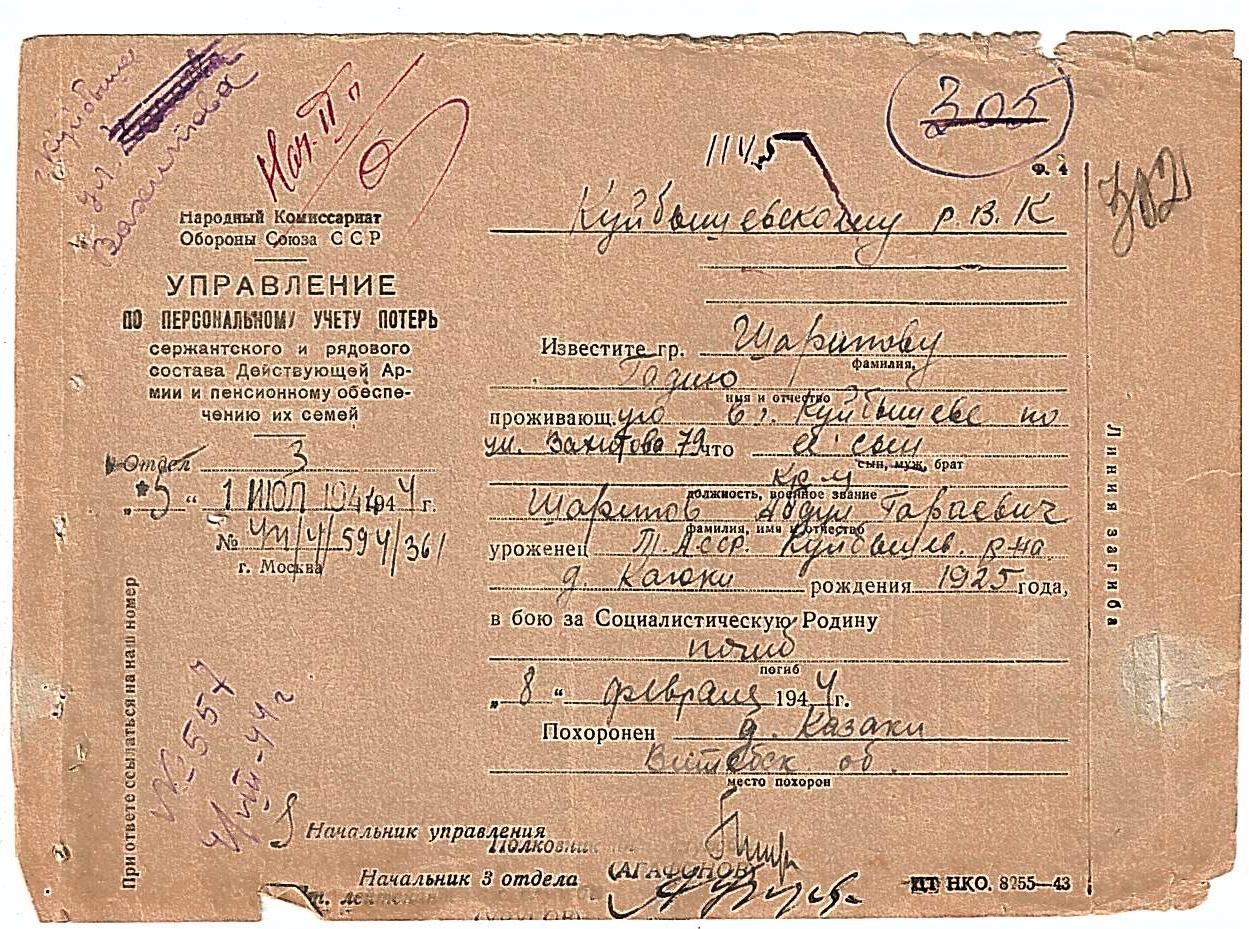 Куйбышев
ул.
Вахитова
Нач. II п
305
1145
Ф. 4
302
Народный Комиссариат
Обороны Союза ССР
УПРАВЛЕНИЕ
ПО ПЕРСОНАЛЬНОМУ УЧЕТУ ПОТЕРЬ
сержантского и рядового
состава Действующей Ар-
мии и пенсионному обеспе-
чению их семей
Отдел 3
"5" 1 ИЮЛ 1944 194 г.
№ 4/594/361
г. Москва
При ответе ссылаться на наш номер
№ 557
44 г
Куйбышевскому р.В.К
Известите гр. Шарипову
фамилия,
Гадию
имя и отчество
проживающ.его в г. Куйбышеве по
ул. Вахитова 79 что её сын
сын, муж, брат
кр-м
должность, военное звание
Шарипов Абдул Гараевич
фамилия, имя и отчество
уроженец Т.АССР. Куйбышев. р-на
д. Каюки рождения 1925 года,
в бою за Социалистическую Родину
погиб
погиб
"8" февраля 1944 г.
Похоронен д. Казаки
Витебск об.
место похорон
Начальник управления
Полковник
(АГАФОНОВ)
Начальник 3 отдела
т. лейтенант
ЦТ НКО. 8255—43
Линия загиба